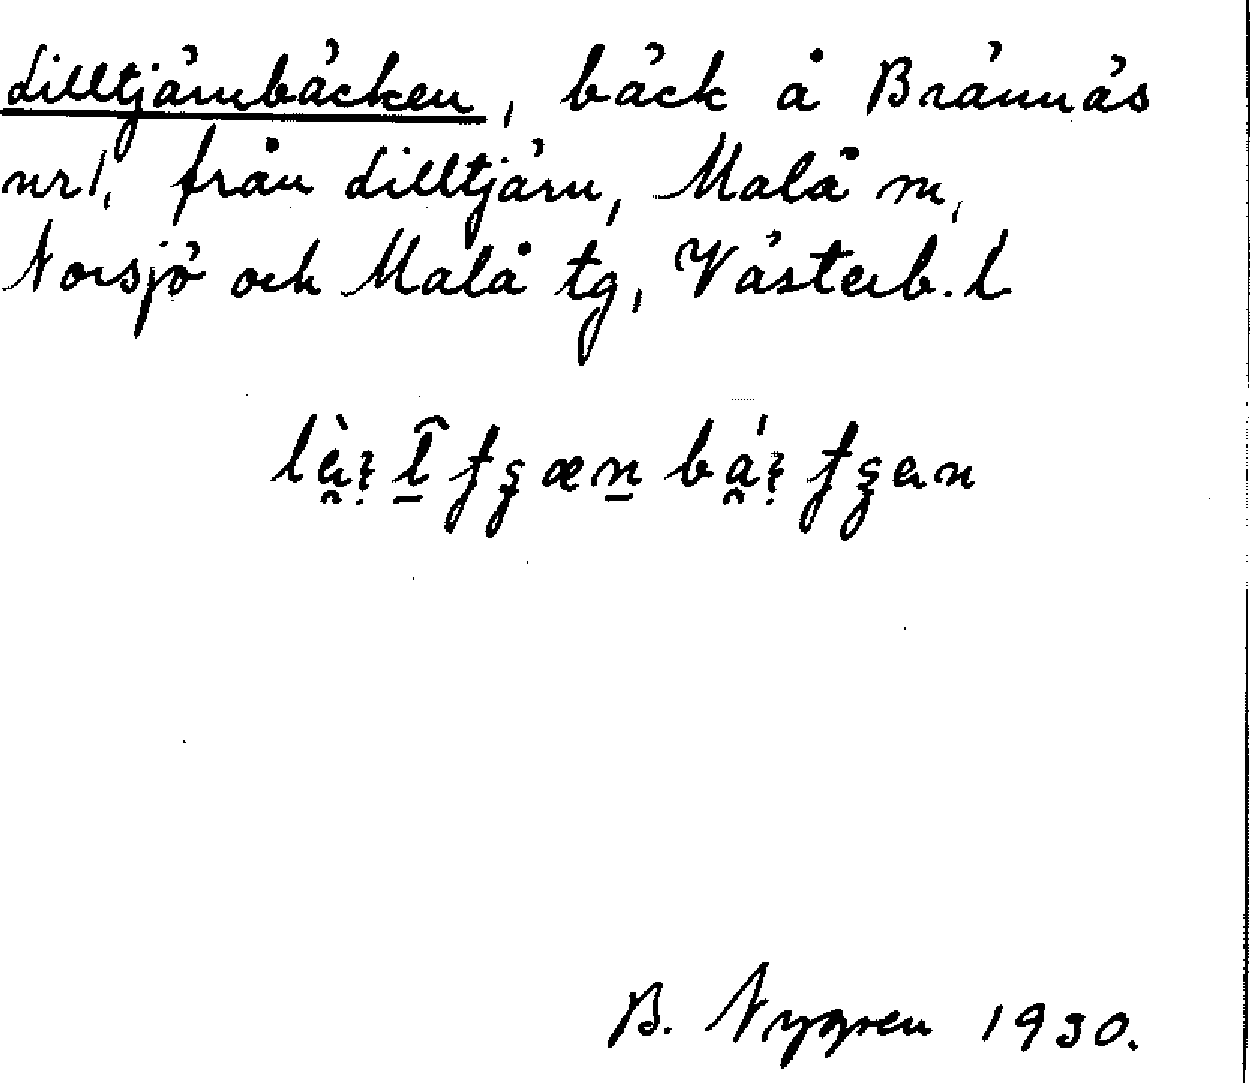 Lilltjärnbäcken, bäck å Brännäs
nr 1, från Lilltjärn, Malå m,
Norsjö och Malå tg, Västerb. l
B. Nygren 1930.